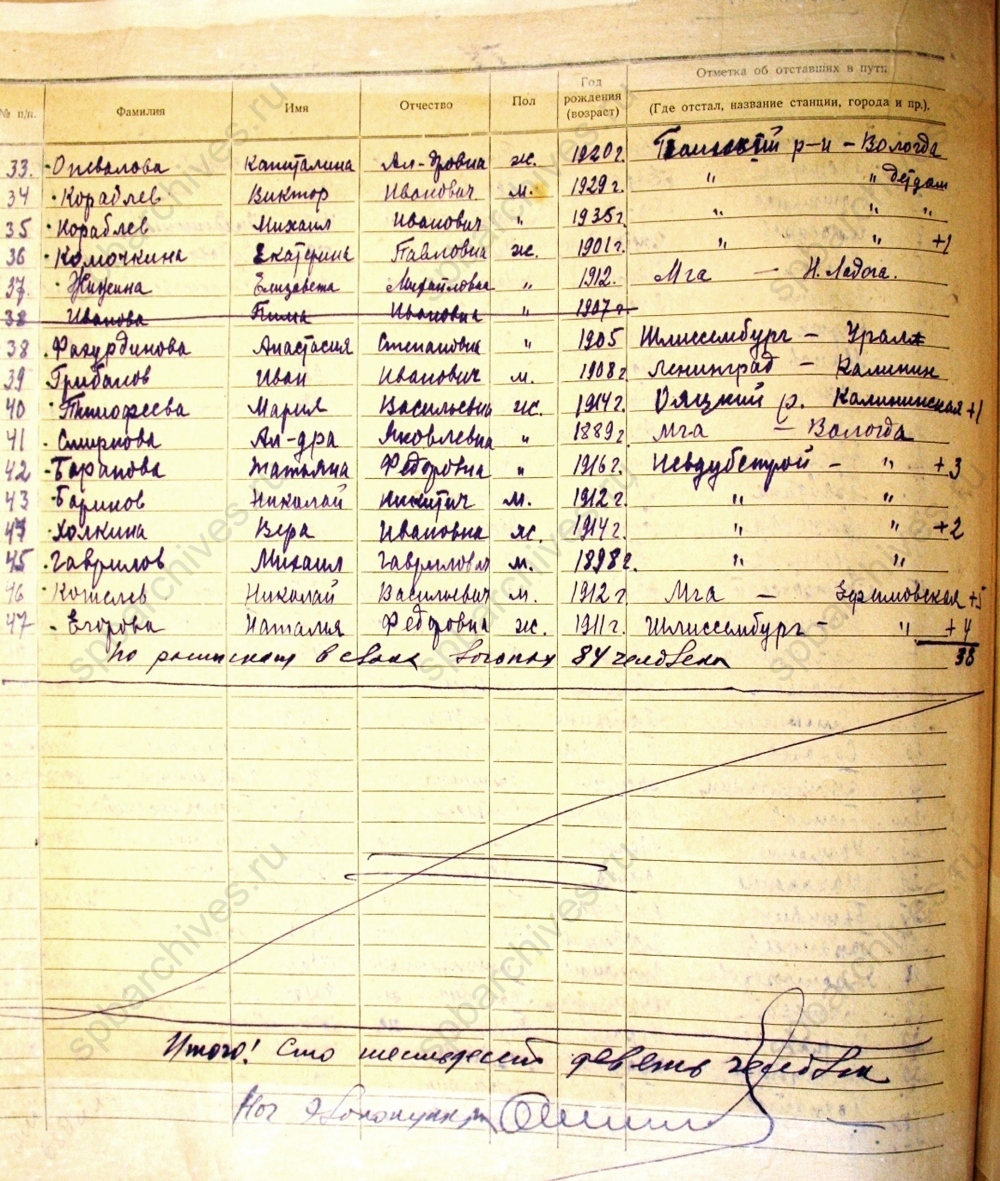 Отметка об отставших в пути
№ п/п. Фамилия Имя Отчество Пол Год рождения (возраст) (Где отстал, название станции, города и пр.).
33. Капиталина Ал-дровна ж. 1920 г. р-н – Вологда
34 Кораблев Виктор Иванович м. 1929 г. " " детдом
35 Кораблев Михаил Иванович " 1935 г. " " "
36 Комочкина Екатерина Павловна ж. 1901 г. " " +1
37. Елизавета Михайловна " 1912. Мга — Н. Ладога.
38 Иванова Ивановна " 1907 г
38 Фахурдинова Анастасия Степановна " 1905 Шлиссембург – Урал
39 Грибанов Иван Иванович м. 1908 г Ленинград – Калинин
40 Тимофеева Мария Васильевн ж. 1914 г. р. Калининская +1
41 Смирнова Ал-дра Яковлевна " 1889 г Мга – Вологда
42 Баранова Татьяна Федоровна " 1916 г. Невдубстрой – " +3
43 Баринов Николай Никитич м. 1912 г. " "
Холкина Вера Ивановна ж. 1914 г. " " +2
45 Гаврилов Михаил Гаврилович м. 1898 г. " "
46 Кошелев Николай Васильевич м. 1912 г. Мга – Ефимовская +5
47 Егорова Наталия Федоровна ж. 1911 г. Шлиссембург – " +4
38
По в вагонах 84 человека
Итого! Сто шестьдесят девять человек
Нач Эвакопункта
spbarchives.ru